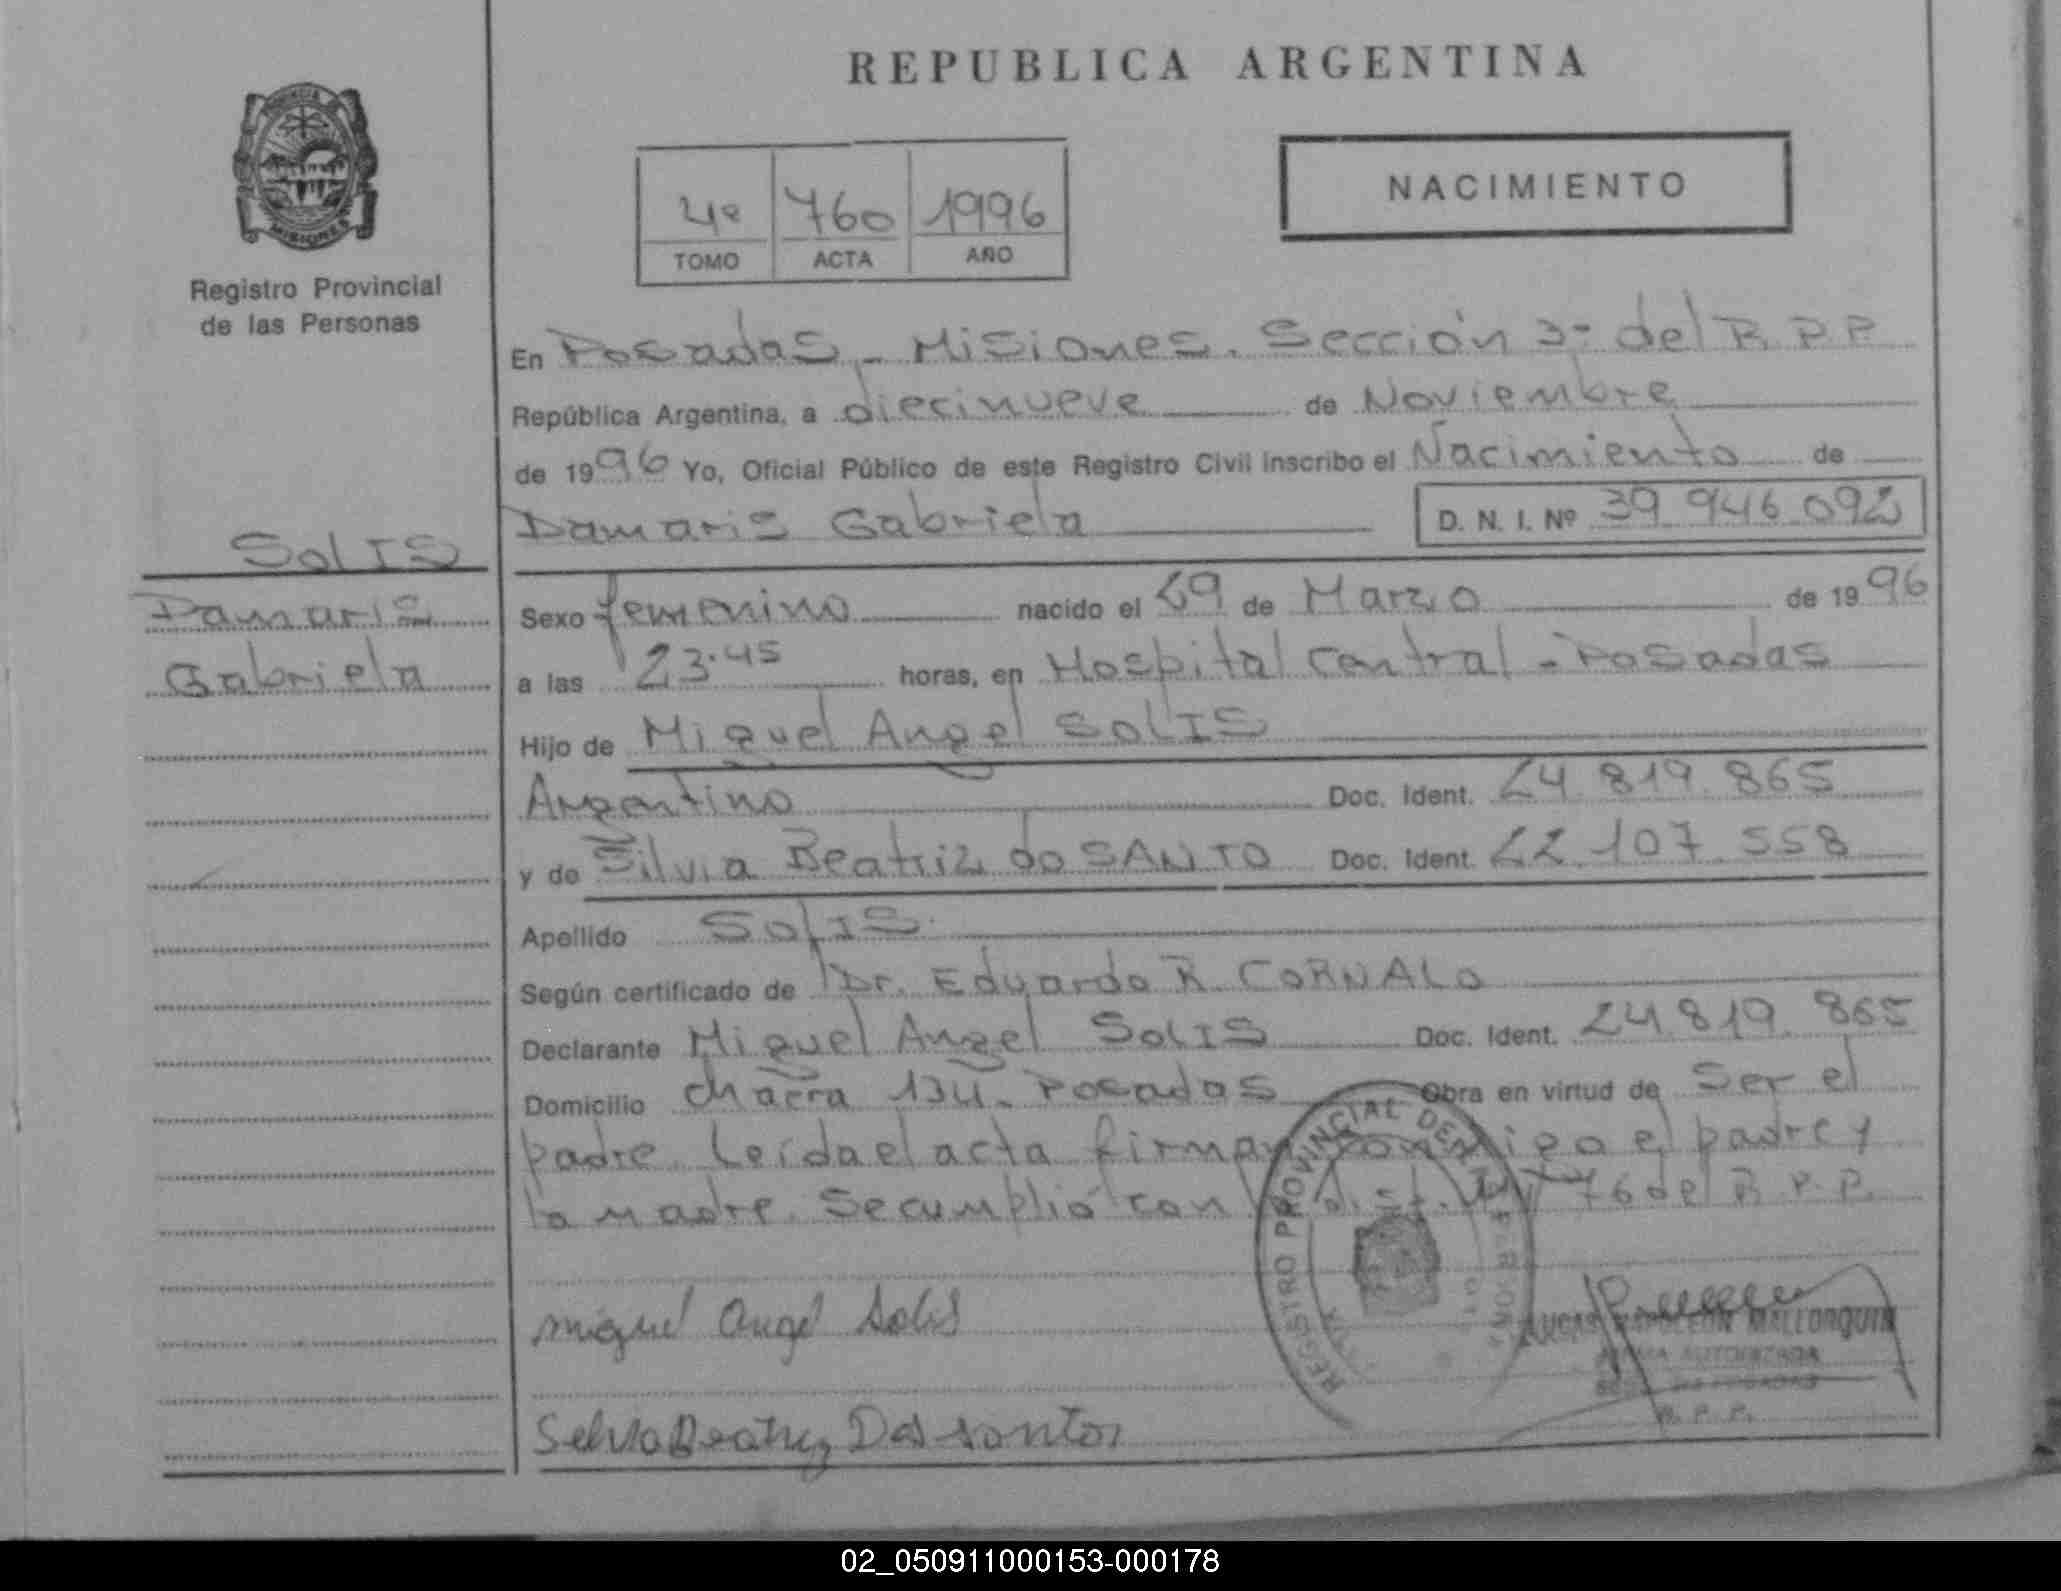 REPUBLICA ARGENTINA
PROVINCIA DE
MISIONES
Registro Provincial
de las Personas
4º 760 1996
TOMO ACTA AÑO
NACIMIENTO
En Posadas - Misiones. Sección 3ª del R. P. P.
República Argentina, a diecinueve de Noviembre
de 1996 Yo, Oficial Público de este Registro Civil inscribo el Nacimiento de
Damaris Gabriela D. N. I. Nº 39 946 092
SolIS
Damaris
Gabriela
Sexo femenino nacido el 29 de Marzo de 1996
a las 23.45 horas, en Hospital Central - Posadas
Hijo de Miguel Angel SolIS
Argentino Doc. Ident. 24.819.865
y de Silvia Beatriz do SANTO Doc. Ident. 22.107.558
Apellido SolIS.
Según certificado de Dr. Eduardo R. CORNALO
Declarante Miguel Angel SolIS Doc. Ident. 24.819.865
Domicilio chacra 134. Posadas Obra en virtud de Ser el
padre. Leída el acta firman conmigo el padre y
la madre. Se cumplió con 76 del R. P. P.
REGISTRO PROVINCIAL DE
Miguel Angel Solis
LUCAS NAPOLEON MALLORQUIN
FIRMA AUTORIZADA
R. P. P.
Selvia Beatriz Dos santos
02_050911000153-000178